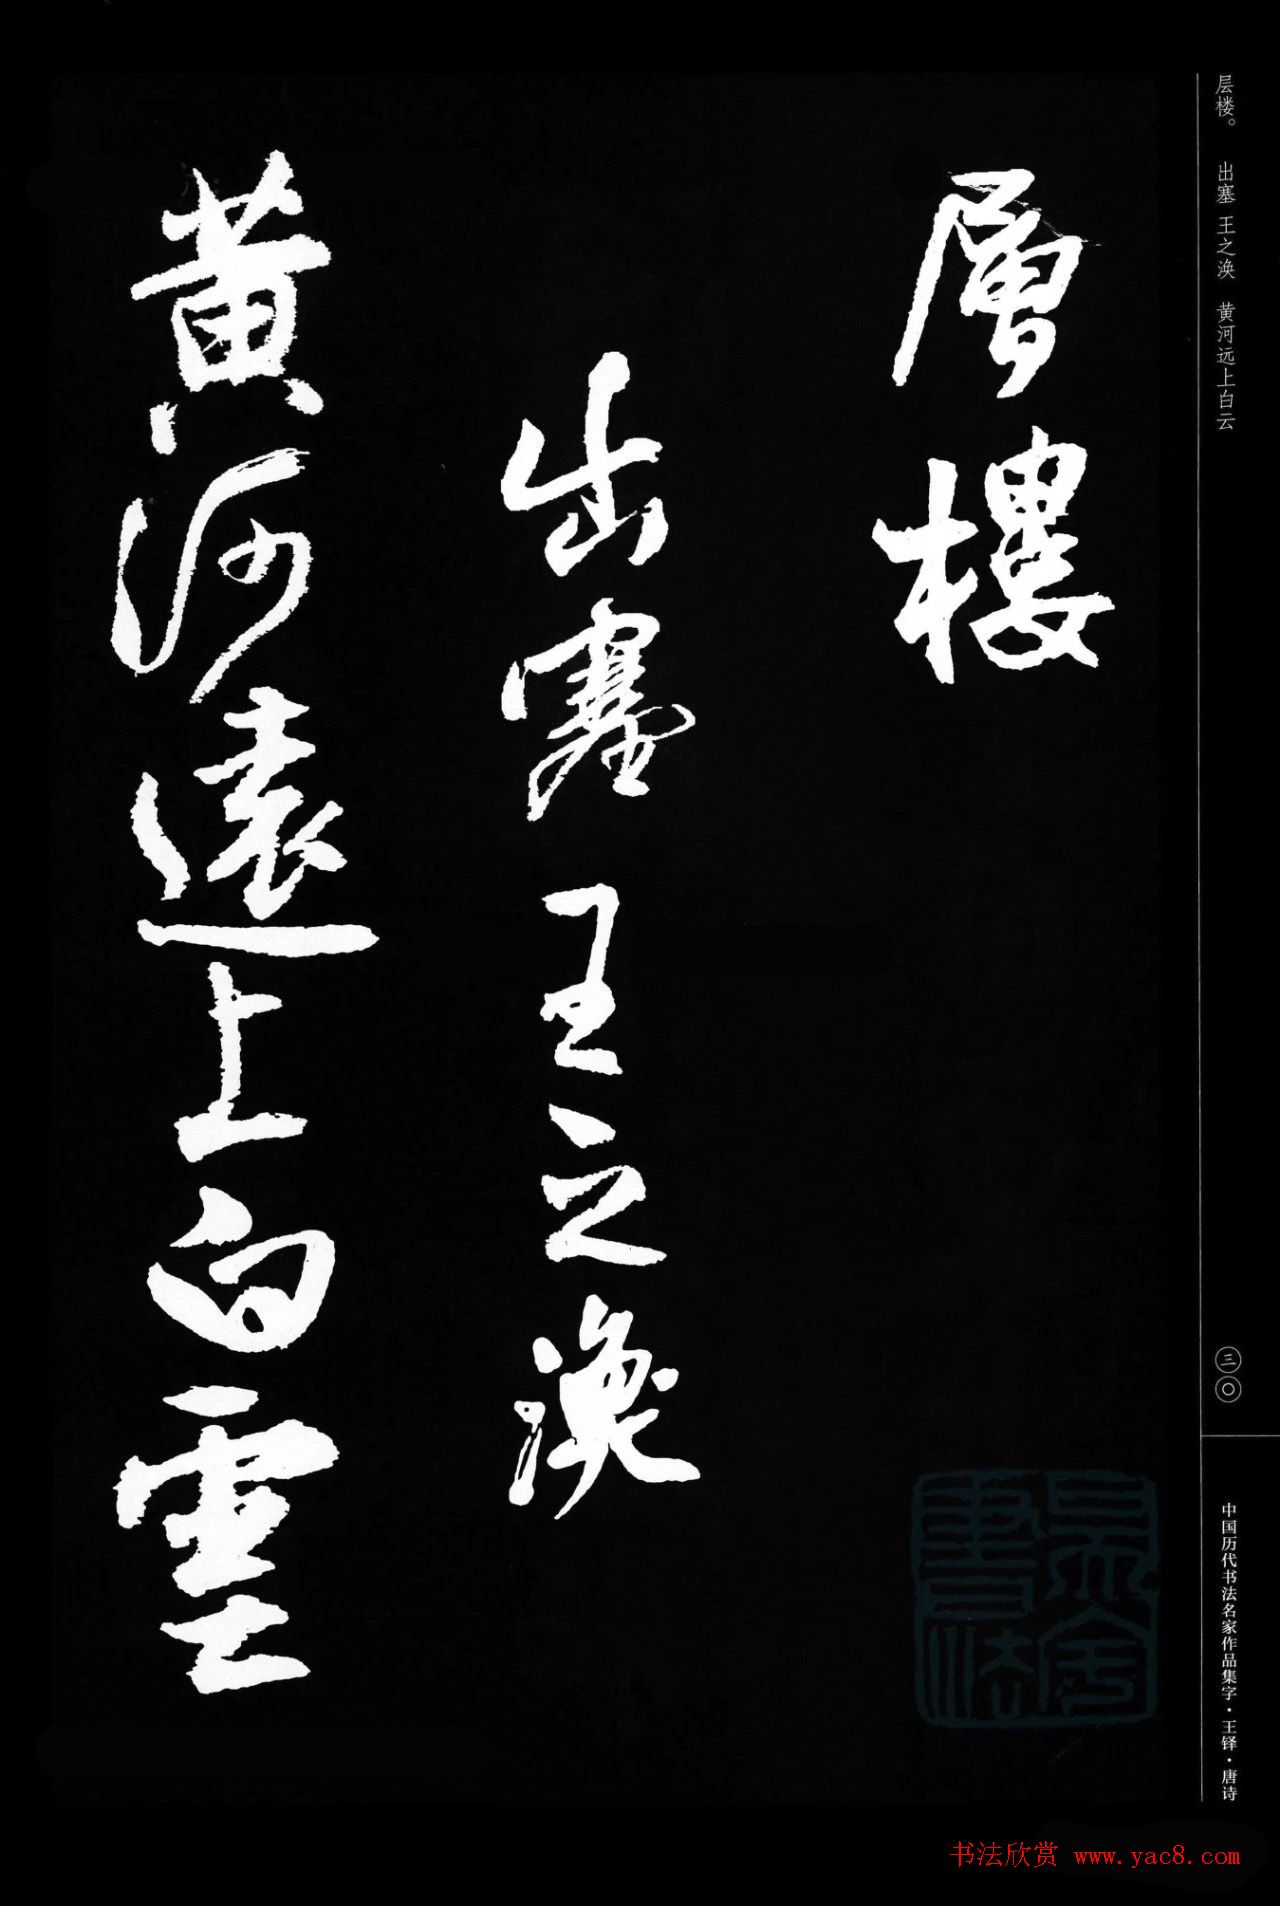 层楼。 出塞 王之涣 黄河远上白云
層樓
出塞 王之渙
黄河遠上白雲
三〇
中国历代书法名家作品集字·王铎·唐诗
书法欣赏 www.yac8.com